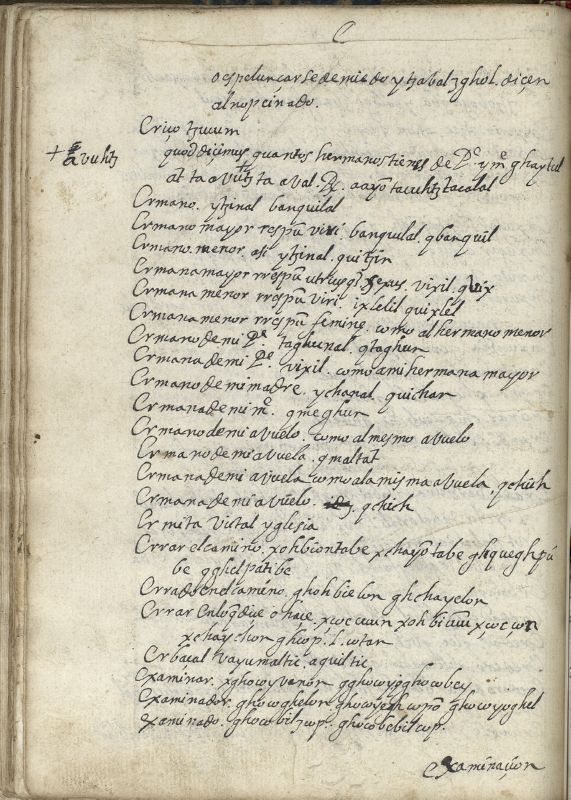 E
o espeluncarse de miedo ytzabalzghol. diçen
al nopcinado.
Eriço tzuum
+ avuhtz
quod dicimus quantos hermanos tienes de Pe. y me. ghaytul
at ta avuhtz ta aval. R. aayo ta cuhtz ta calal
Ermano. ytzinal banquilal
Ermano mayor respu viri. banquilal. qbanquil
Ermano. menor. ast ytzinal. quitzin
Ermana mayor rrespu utriusqs. sexus. vixil. quix
Ermana menor rrespu viri. ixlelil quixlel
Ermana menor rrespu femine. como al hermano menor
Ermano de mi Pe. taghunal. qtaghun
Ermana de mi Pe. vixil. como a mi hermana mayor
Ermano de mi madre. ychanal. quichan
Ermana de mi me. qmeghun
Ermano de mi avuelo. como al mesmo avuelo
Ermano de mi avuela. qmaltat
Ermana de mi avuela. como a la misma avuela. qchich
Ermana de mi avuelo. qchich
Ermita victal yglesia
Errar el camino. xohbiontabe xchayotabe ghqueghpu
be qghelpatibe
Errado en el camino. ghohbielon ghchayelon
Errar en lo q diçe o haçe. xcoc cuun xohbicuun xcoc con
xchaychon ghcop. l. cotan
Erbaçal vayumaltic. aquiltic
Examinar. xghocoyvanon qghocoyoghocobcy
Examinador. ghocoghelon ghocoyegh cono ghocoyoghel
examinado. ghocobiltzcop. ghocobebilcop.
examinaçion